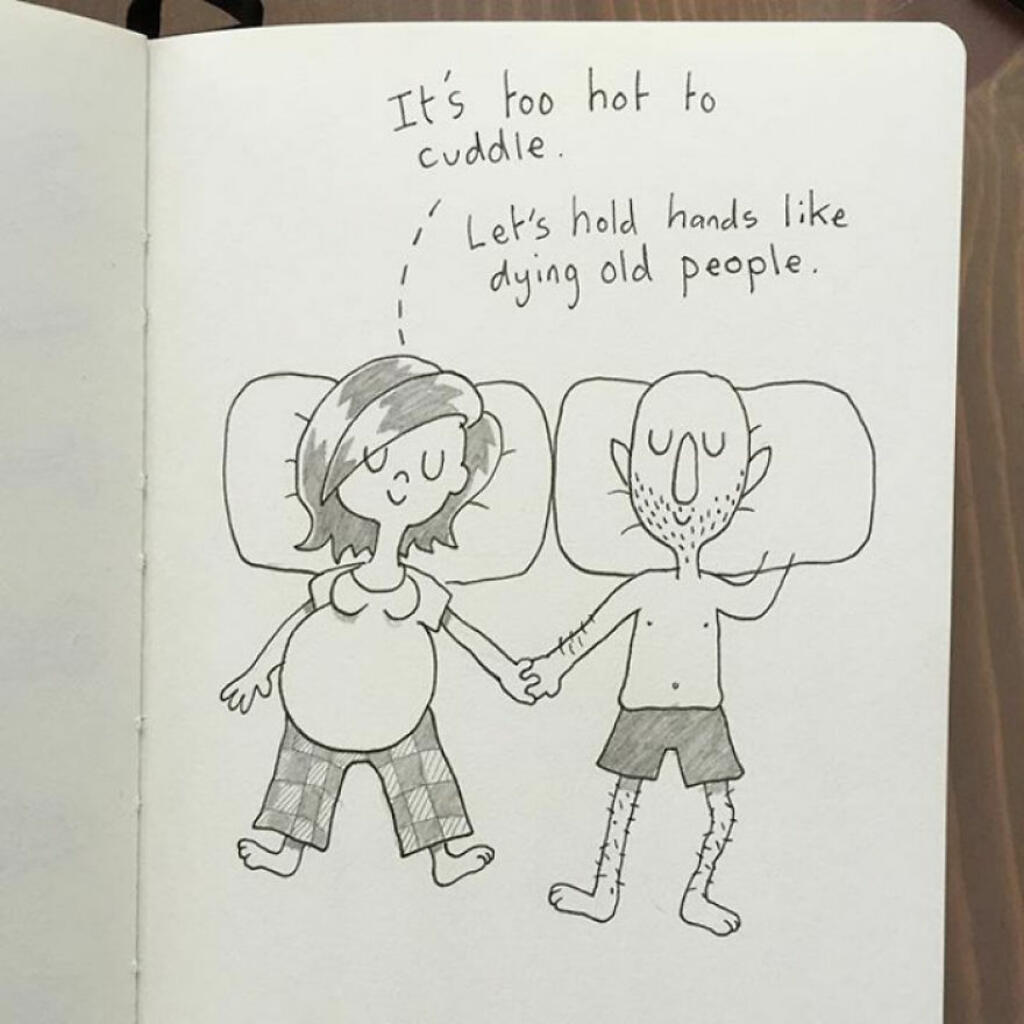 It's too hot to
cuddle.
Let's hold hands like
dying old people.